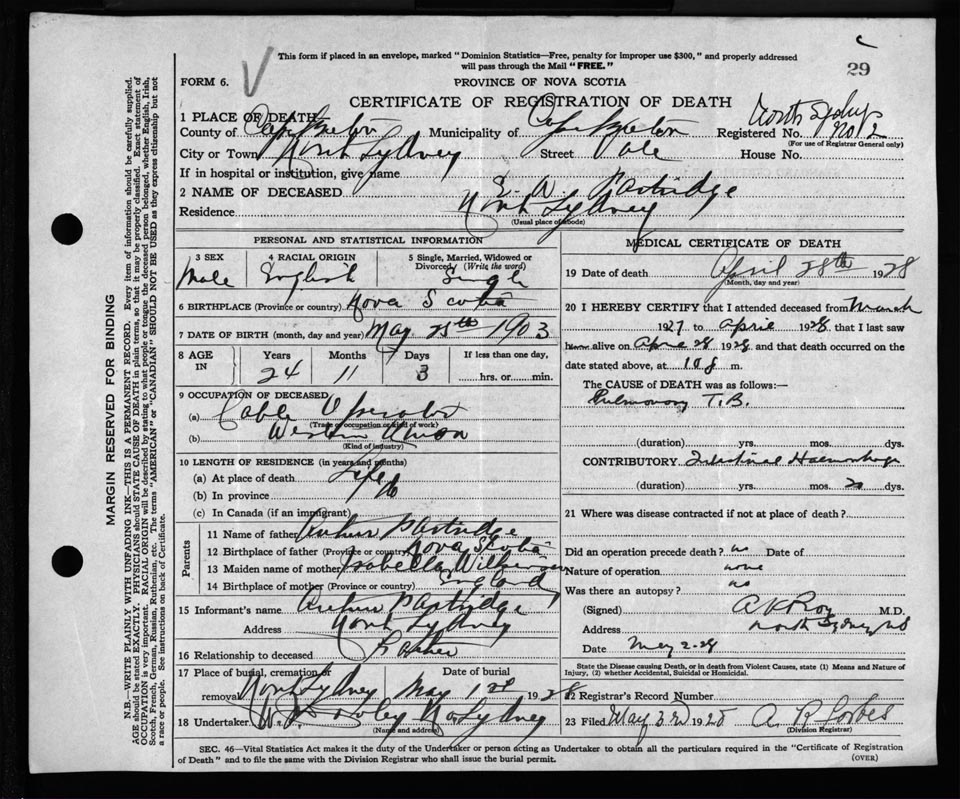 This form if placed in an envelope, marked "Dominion Statistics—Free, penalty for improper use $300," and properly addressed
will pass through the Mail "FREE."
29
FORM 6.
PROVINCE OF NOVA SCOTIA
CERTIFICATE OF REGISTRATION OF DEATH
1 PLACE OF DEATH—
County of Cape Breton Municipality of Cape Breton Registered No. North Sydney
(For use of Registrar General only)
City or Town North Sydney Street House No.
If in hospital or institution, give name
2 NAME OF DECEASED E. W. Partridge
Residence North Sydney
(Usual place of abode)
PERSONAL AND STATISTICAL INFORMATION
3 SEX Male
4 RACIAL ORIGIN English
5 Single, Married, Widowed or Divorced (Write the word) Single
6 BIRTHPLACE (Province or country) Nova Scotia
7 DATE OF BIRTH (month, day and year) May 25th 1903
8 AGE IN Years 24 Months 11 Days 3 If less than one day, hrs. or min.
9 OCCUPATION OF DECEASED
(a) Cable Operator
(Trade occupation or kind of work)
(b) Western Union
(Kind of industry)
10 LENGTH OF RESIDENCE (in years and months)
(a) At place of death Life
(b) In province
(c) In Canada (if an immigrant)
Parents
11 Name of father Arthur Partridge
12 Birthplace of father (Province or country) Nova Scotia
13 Maiden name of mother Isabella
14 Birthplace of mother (Province or country) England
15 Informant's name Arthur Partridge
Address North Sydney
16 Relationship to deceased Father
17 Place of burial, cremation or removal North Sydney Date of burial May 1st 1928
18 Undertaker No Sydney
(Name and address)
MEDICAL CERTIFICATE OF DEATH
19 Date of death April 28th 1928
(Month, day and year)
20 I HEREBY CERTIFY that I attended deceased from March
1927 to April 1928, that I last saw
him alive on April 28 1928, and that death occurred on the
date stated above, at m.
The CAUSE of DEATH was as follows:—
Pulmonary T.B.
(duration) yrs. mos. dys.
CONTRIBUTORY Intestinal Haemorrhage
(duration) yrs. mos. dys.
21 Where was disease contracted if not at place of death?
Did an operation precede death? no Date of
Nature of operation none
Was there an autopsy? no
(Signed) A K Roy M.D.
Address North Sydney NS
Date May 2-28
State the Disease causing Death, or in death from Violent Causes, state (1) Means and Nature of
Injury, (2) whether Accidental, Suicidal or Homicidal.
22 Registrar's Record Number
23 Filed May 1928 A. R. Forbes
(Division Registrar)
SEC. 46—Vital Statistics Act makes it the duty of the Undertaker or person acting as Undertaker to obtain all the particulars required in the "Certificate of Registration
of Death" and to file the same with the Division Registrar who shall issue the burial permit.
(OVER)
MARGIN RESERVED FOR BINDING
N.B.—WRITE PLAINLY WITH UNFADING INK—THIS IS A PERMANENT RECORD. Every item of information should be carefully supplied.
AGE should be stated EXACTLY. PHYSICIANS should STATE CAUSE OF DEATH in plain terms, so that it may be properly classified. Exact statement of
OCCUPATION is very important. RACIAL ORIGIN will be described by stating to what people or tongue the deceased person belonged, whether English, Irish,
Scotch, French, German, Russian, Ruthenian, etc. The terms "AMERICAN" or "CANADIAN" SHOULD NOT BE USED as they express citizenship but not
a race or people. See instructions on back of Certificate.